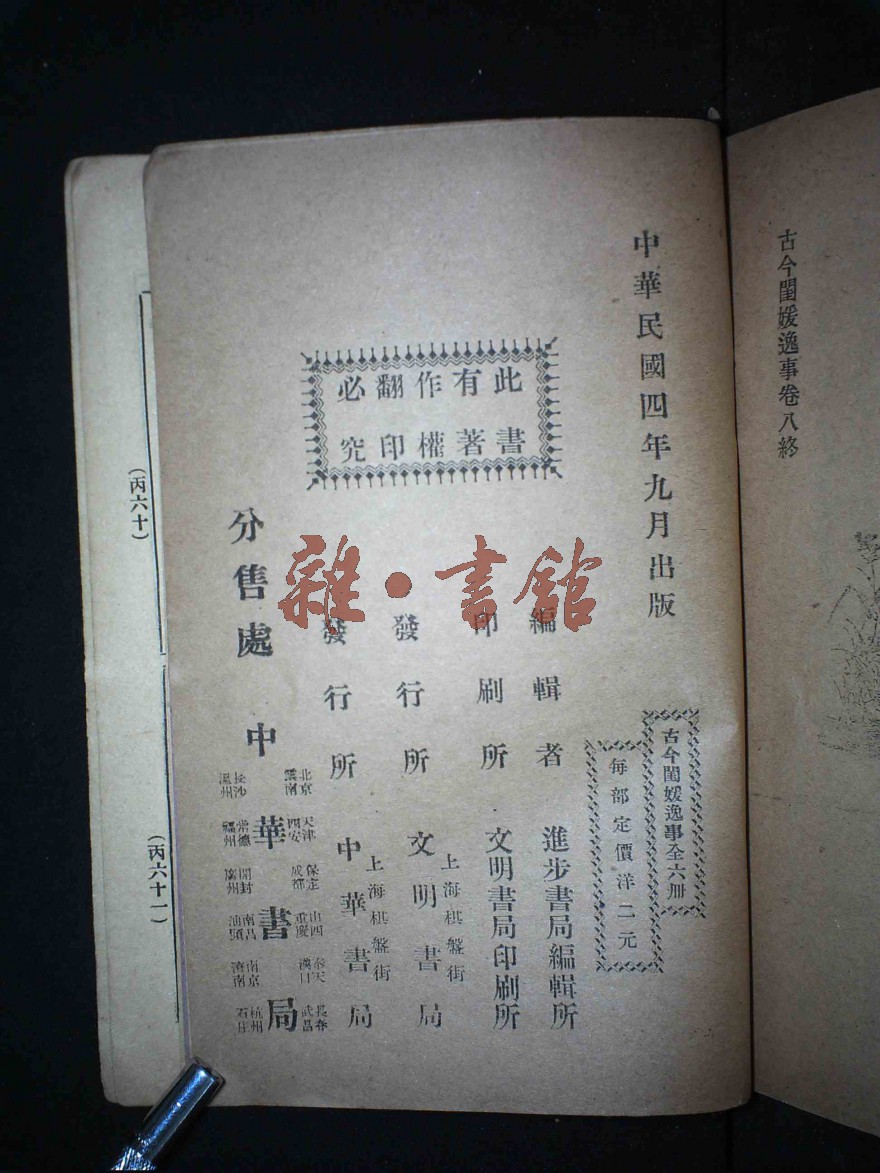 古今閨媛逸事卷八終
中華民國四年九月出版
古今閨媛逸事全六冊
每部定價洋二元
此書
有著
作權
翻印
必究
編輯者 進步書局編輯所
印刷所 文明書局印刷所
發行所 上海棋盤街 文明書局
發行所 上海棋盤街 中華書局
分售處 中華書局
北京 天津 保定 山西 奉天 長春
雲南 西安 成都 重慶 漢口 武昌
長沙 常德 開封 南昌 南京 杭州
溫州 福州 廣州 汕頭 濟南 石庄
雜·書館
(丙六十)
(丙六十一)